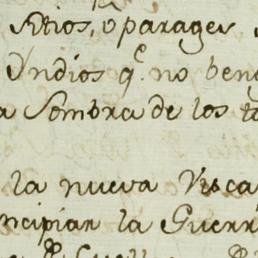 Sitios, ò parages
Yndios q.e no ben
a Sombra de los t
la nueva Visca
ncipiar la Guerr